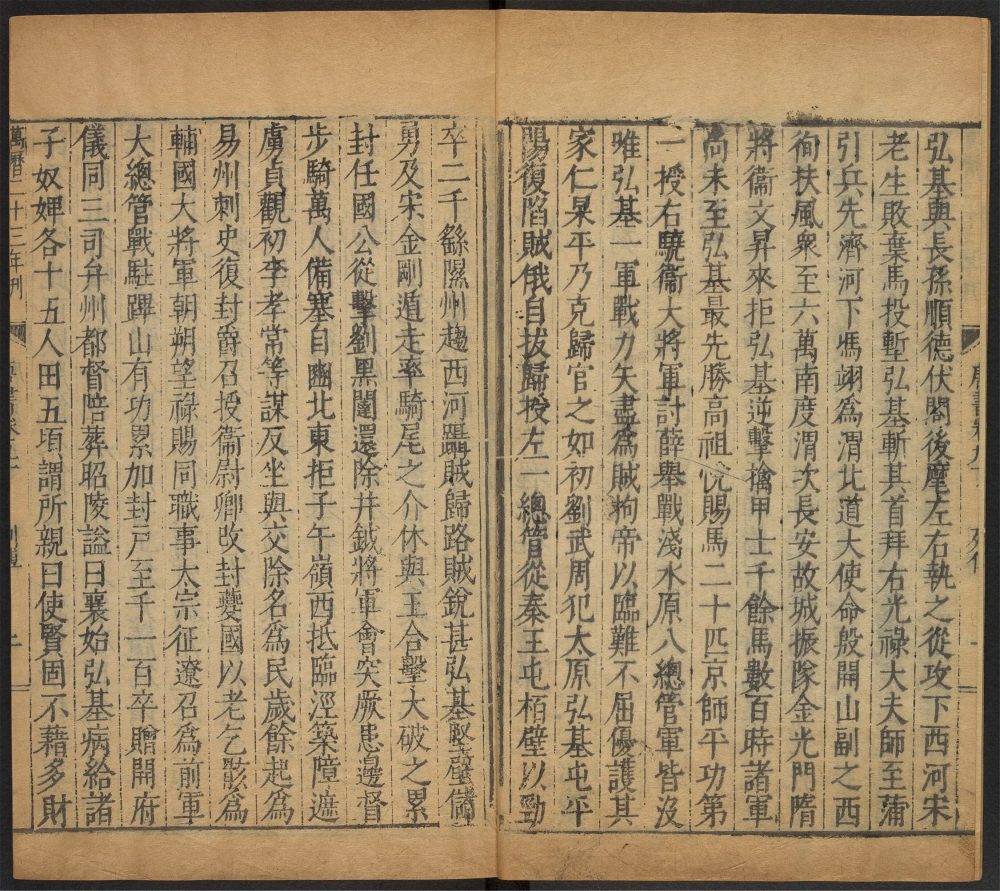 弘基與長孫順德伏閤後麾左右執之從攻下西河宋
老生敗棄馬投塹弘基斬其首拜右光祿大夫師至蒲
引兵先濟河下馮翊爲渭北道大使命殷開山副之西
徇扶風衆至六萬南度渭次長安故城振隊金光門隋
將衞文昇來拒弘基逆擊擒甲士千餘馬數百時諸軍
尚未至弘基最先勝高祖悅賜馬二十匹京師平功第
一授右驍衞大將軍討薛舉戰淺水原八總管軍皆沒
唯弘基一軍戰力矢盡爲賊拘帝以臨難不屈優護其
家仁杲平乃克歸官之如初劉武周犯太原弘基屯平
陽復陷賊俄自拔歸授左一總管從秦王屯栢壁以勁
卒二千繇隰州趨西河躡賊歸路賊銳甚弘基堅壁儲
勇及宋金剛遁走率騎尾之介休與王合擊大破之累
封任國公從擊劉黑闥還除井鉞將軍會突厥患邊督
步騎萬人備塞自豳北東拒子午嶺西抵臨涇築障遮
虜貞觀初李孝常等謀反坐與交除名爲民歲餘起爲
易州刺史復封爵召授衞尉卿改封夔國以老乞骸爲
輔國大將軍朝朔望祿賜同職事太宗征遼召爲前軍
大總管戰駐蹕山有功累加封戸至千一百卒贈開府
儀同三司幷州都督陪葬昭陵諡曰襄始弘基病給諸
子奴婢各十五人田五頃謂所親曰使賢固不藉多財
萬曆二十三年刊